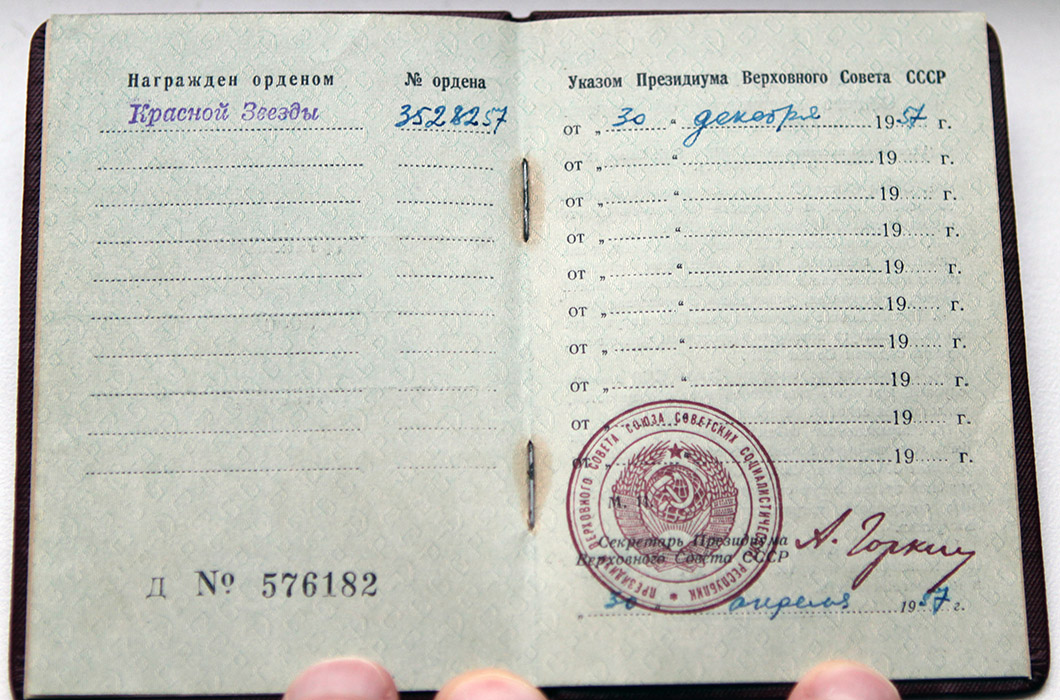 Награжден орденом
№ ордена
Красной Звезды
3528257
Указом Президиума Верховного Совета СССР
от „ 30 “ декабря 1957 г.
от „ “ 19 г.
от „ “ 19 г.
от „ “ 19 г.
от „ “ 19 г.
от „ “ 19 г.
от „ “ 19 г.
от „ “ 19 г.
от „ “ 19 г.
от „ “ 19 г.
ПРЕЗИДИУМ ВЕРХОВНОГО СОВЕТА СОЮЗА СОВЕТСКИХ СОЦИАЛИСТИЧЕСКИХ РЕСПУБЛИК
М. П.
Секретарь Президиума
Верховного Совета СССР
А. Горкин
„ 30 “ апреля 1957 г.
Д № 576182